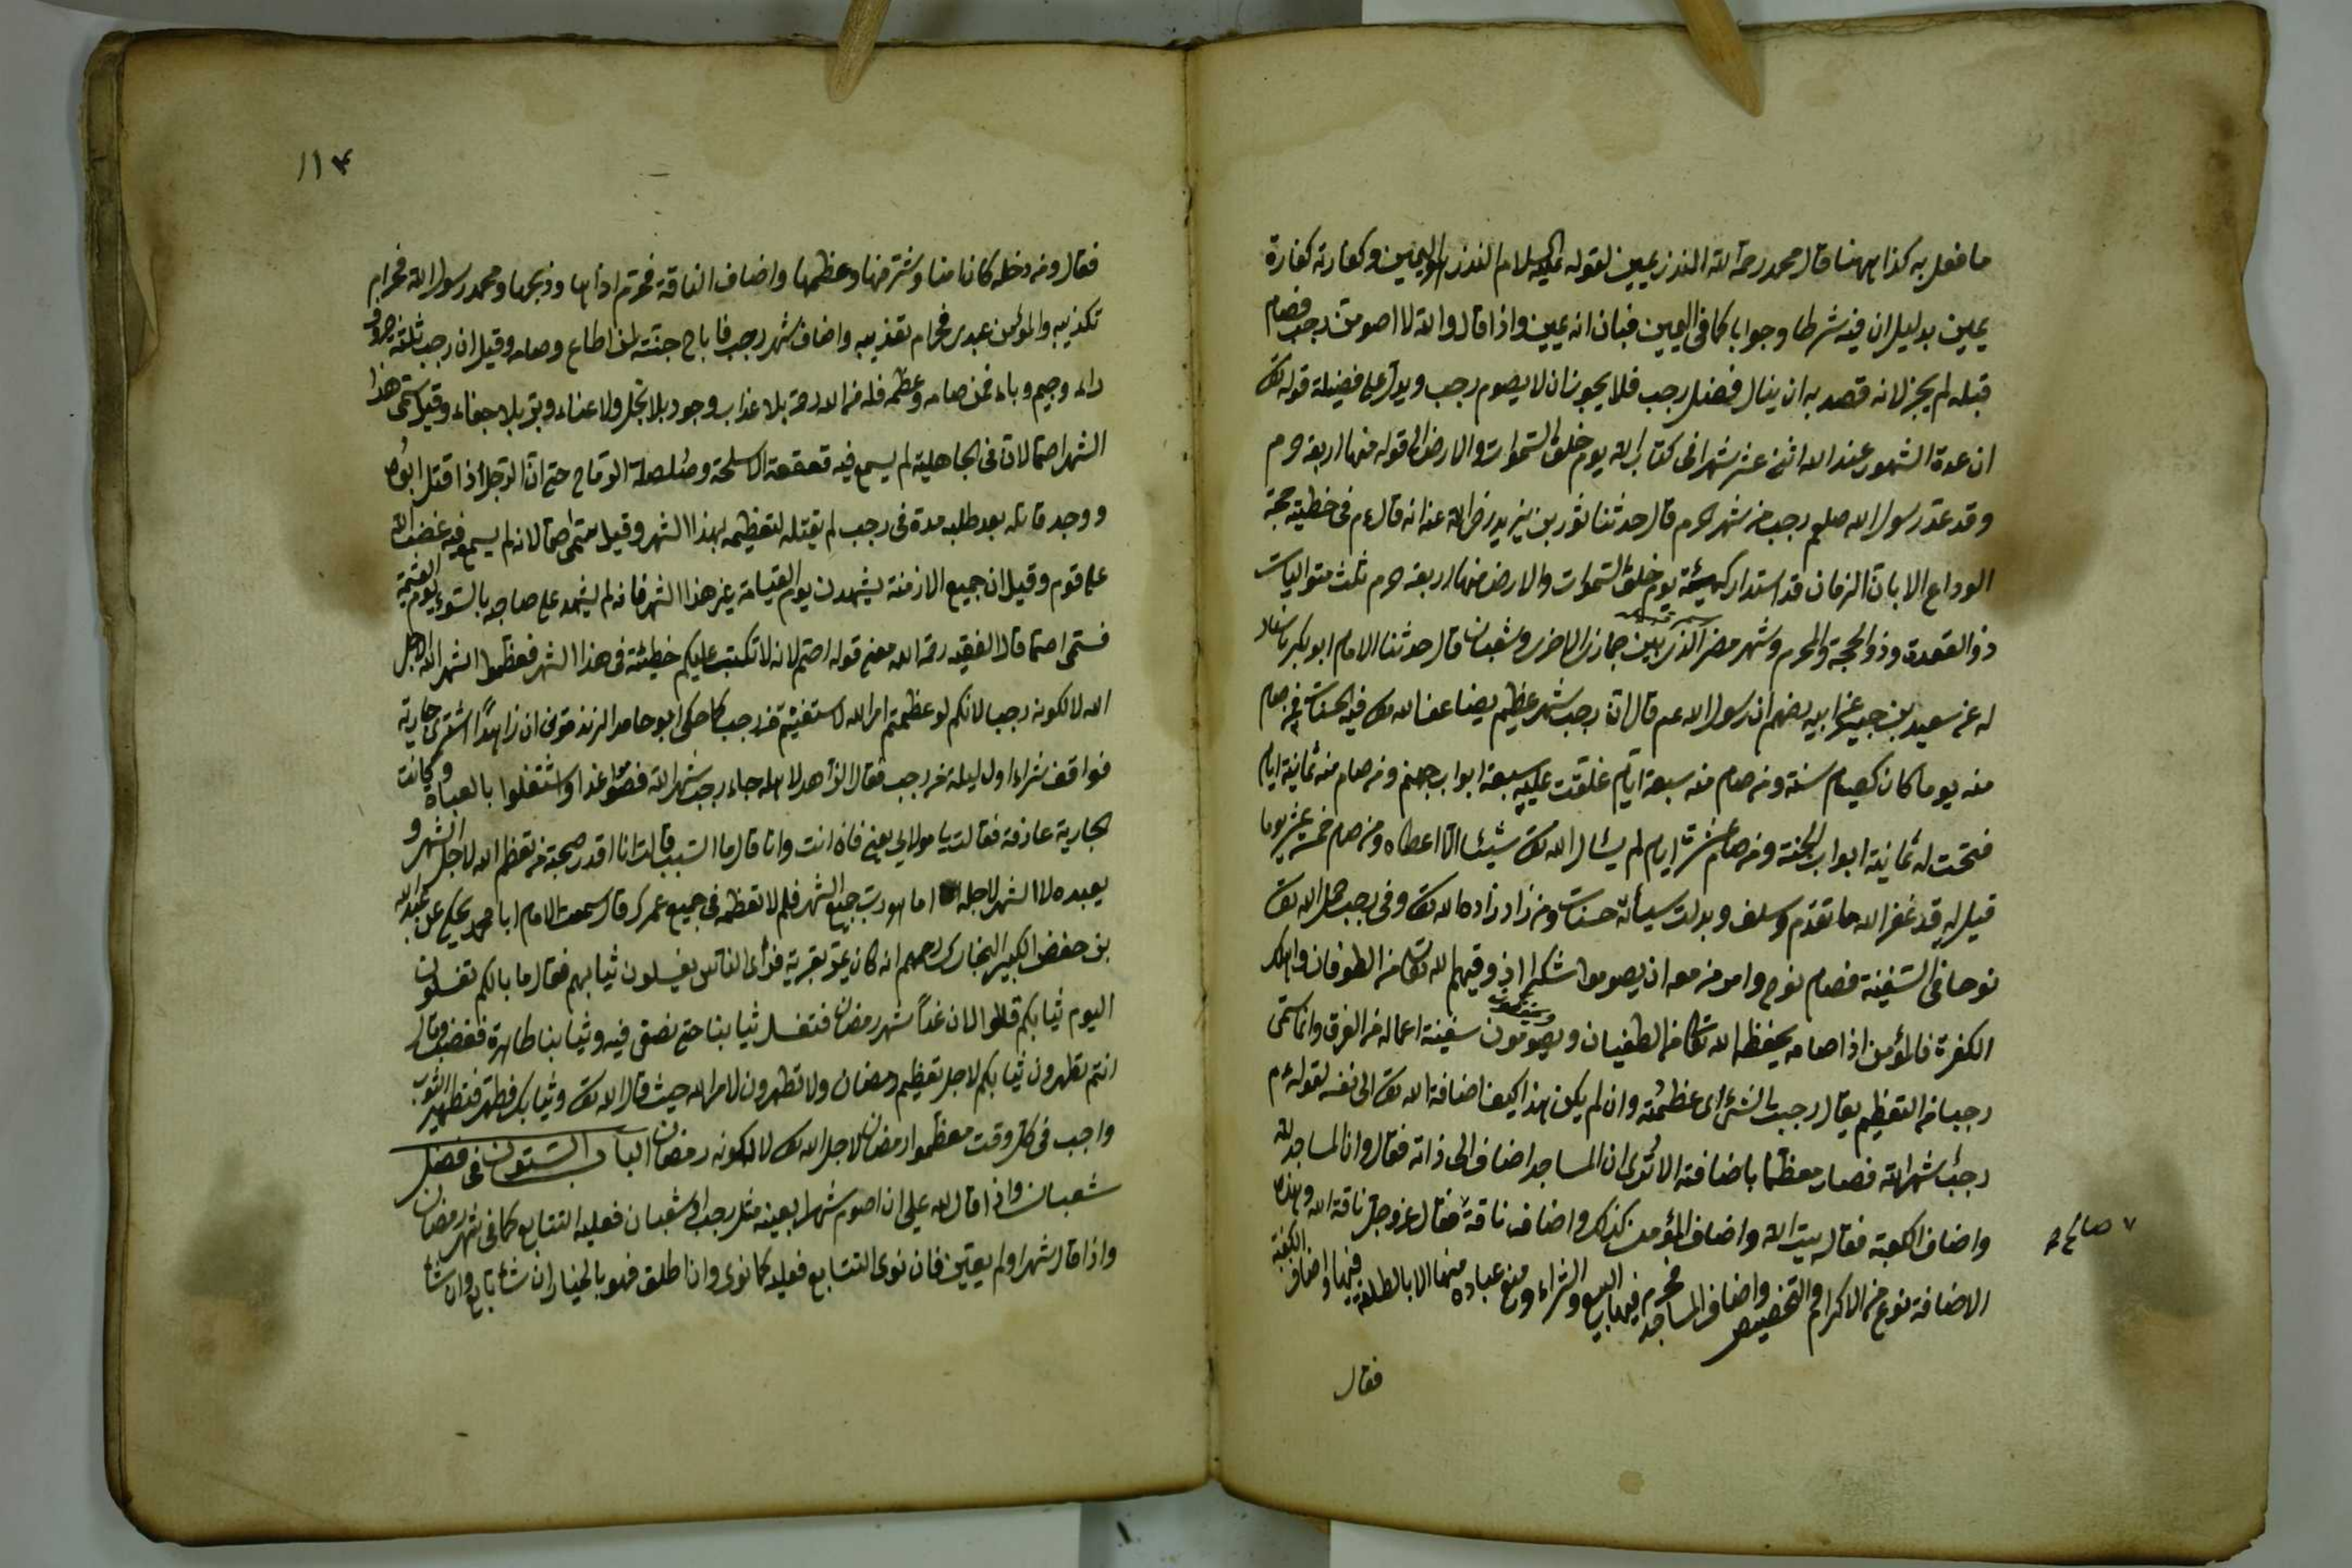 ما فعل به كذا ههنا قال محمد رحمه الله النذر يمين لقوله عليه السلام النذر هو اليمين وكفارته كفارة
يمين بدليل ان فيه شرطا وجوابا كما فى اليمين فبان انه يمين واذا قال والله لا اصومن رجب فصام
قبله لم يجز لانه قصد به ان ينال فضل رجب فلا يجوز ان لا يصوم رجب ويدل على فضيلة قوله تعالى
ان عدة الشهور عند الله اثنى عشر شهرا فى كتاب الله يوم خلق السموات والارض الى قوله منها اربعة حرم
وقد عد رسول الله صلعم رجب من شهر الحرم قال حدثنا ثور بن يزيد رضى الله عنه انه قال عم فى خطبة حجة
الوداع الا بان الزمان قد استدار كهيئة يوم خلق السموات والارض منها اربعة حرم ثلث متواليات
ذو القعدة وذو الحجة والمحرم وشهر مضر الذى بين جمادى الاخرى وشعبان قال حدثنا الامام ابو بكر باسناد
له عن سعيد بن جبير عن ابيه رضهم ان رسول الله عم قال ان رجب شهر عظيم يضاعف الله تعالى فيه الحسنات فمن صام
منه يوما كان كصيام سنة ومن صام منه سبعة ايام غلقت عليه سبعة ابواب جهنم ومن صام منه ثمانية ايام
فتحت له ثمانية ابواب الجنة ومن صام عشرة ايام لم يسئال الله تعالى شيئا الا اعطاه ومن صام خمسة عشر يوما
قيل له قد غفر الله ما تقدم وسلف وبدلت سيأته حسنات ومن زاد زاده الله تعالى وفى رجب حمل الله تعالى
نوحا فى السفينة فصام نوح وامر من معه ان يصوموا شكرا اذ وقيهم الله تعالى من الطوفان واهلك
الكفرة فالمؤمن اذا صامه يحفظه الله تعالى من الطغيان ويصومون سفينة اعماله من الغرق وانما سمى
رجبا من التعظيم يقال رجبت الشئ اى عظمته وان لم يكن هذا كيف اضافة الله تعالى الى نفسه لقوله عم
رجب شهر الله فصار معظما باضافته الا ترى ان المساجد اضاف الى ذاته فقال وان المساجد لله
واضاف الكعبة فقال بيت الله واضاف المؤمن كذلك واضاف ناقة فقال عز وجل ناقة الله وهذه
الاضافة نوع من الاكرام والتخصيص واضاف المساجد فحرم فيها البيع والشراء ومنع عباده منها الا بالطهارة فيها واضاف الكعبة
فقال
١١٤
فقال ومن دخله كان امنا وشرفها وعظمها واضاف الناقة فحرم اذاها وذبحها ومحمد رسول الله فحرام
تكذيبه والمؤمن عبدى فحرام تعذيبه واضاف شهر رجب فاباح جنته لمن اطاع وصامه وقيل ان رجب ثلثة حروف
راء وجيم وباء فمن صامه وعظمه فله من الله رحمة بلا عذاب وجود بلا بخل ولا عناء وبر بلا جفاء وقيل سمى هذا
الشهر اصما لان فى الجاهلية لم يسمع فيه قعقعة الاسلحة وصلصلة الرماح حتى ان الرجل اذا قتل ابوه
ووجد قاتله بعد طلبه مدة فى رجب لم يقتله لتعظيمه لهذا الشهر وقيل سمى اصما لانه لم يسمع فيه غضب الله
على قوم وقيل ان جميع الازمنة يشهدن يوم القيامة غير هذا الشهر فانه لم يشهد على صاحبه بالسوء يوم القيمة
فسمى اصما قال الفقيه رحمه الله معنى قوله اصم لانه لا تكتب عليكم خطيئة فى هذا الشهر فعظموا الشهر الله لاجل
الله لا لكونه رجب لانكم لو عظمتم امر الله لاستغنيتم من رجب كما حكى ابو حامد ان زاهدا اشترى جارية
فوافق شراءه اول ليلة من رجب فقال الزاهد لاهله جاء رجب شهر الله فصوموا غدا واشتغلوا بالعبادة وكانت
الجارية عارفة فقالت يا مولاى بعنى فاذ انت وانا قال ما السبب قالت انا لا اقدر صحبة من تعظم الله لاجل الشهر و
يعبده لا الشهر لاجله اما هو رب جميع الشهر فلم لا تعظمه فى جميع عمرك قال سمعت الامام ابا محمد يحكى عن عبد الله
بن حفص الكبير البخارى رحمهم انه كان يمر بقرية فرأى الناس يغسلون ثيابهم فقال ما بالكم تغسلون
اليوم ثيابكم قالوا لان غدا شهر رمضان فنغسل ثيابنا حتى نصلى فيه وثيابنا طاهرة فغضب وقال
انتم تطهرون ثيابكم لاجل تعظيم رمضان ولا تطهرون لامر الله حيث قال الله تعالى وثيابك فطهر فتطهير الثوب
واجب فى كل وقت فعظموا رمضان لاجل الله تعالى لا لكونه رمضان الباب الستون فى فضل
شعبان واذا قال لله على ان اصوم شهرا بعينه مثل رجب او شعبان فعليه التتابع كما فى شهر رمضان
واذا قال شهرا ولم يعين فان نوى التتابع فعليه كما نوى وان اطلق فهو بالخيار ان شاء تابع وان شاء